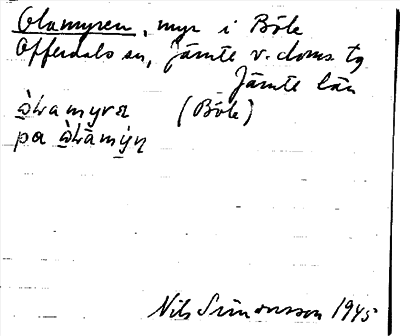 Olamyren, myr i Böle
Offerdals sn, Jämte v. doms. tg
Jämte län
(Böle)
pa
Nils Simonsson 1945